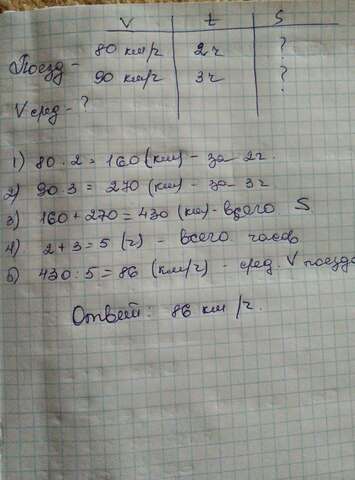 V t S
80 км/ч 2ч ?
Поезд -
90 км/ч 3ч ?
V сред - ?
1) 80 · 2 = 160 (км) - за 2ч.
2) 90 · 3 = 270 (км) - за 3ч
3) 160 + 270 = 430 (км) - всего S
4) 2 + 3 = 5 (ч) - всего часов
5) 430 : 5 = 86 (км/ч) - сред. V поезда
Ответ: 86 км/ч.